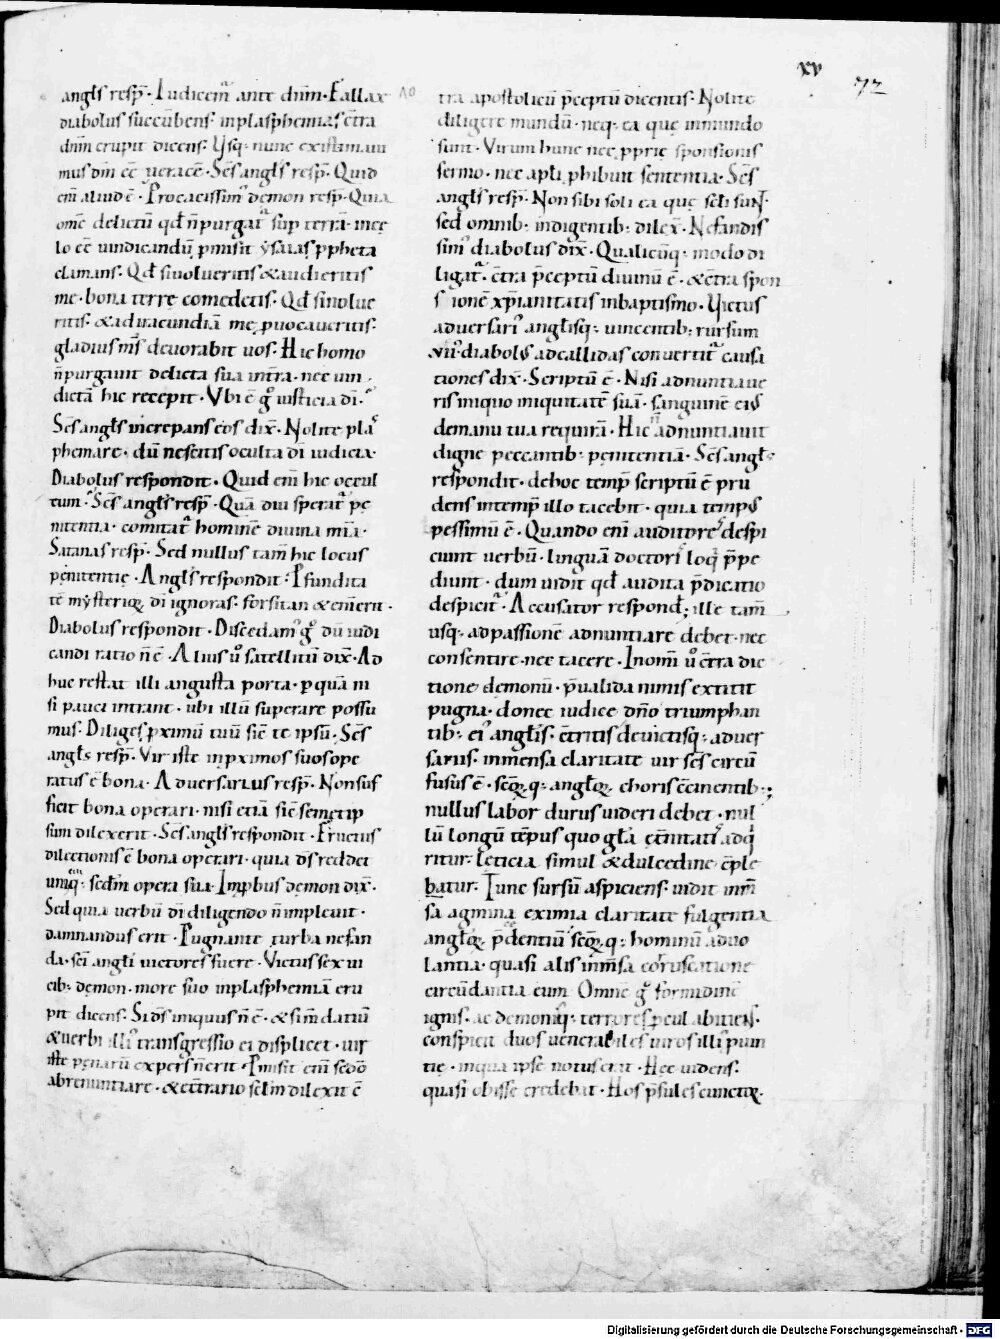 xv
72
angłs resp̄. Iudicem̄ ante dn̄m. Fallax
diabolus succūbens. inplasphemias c̄tra
dn̄m erupit dicens. Vsq; nunc existimaui
mus dm̄ eē ueracē. Scs̄ angłs resp̄. Quid
em̄ aliud ē. Procacissim᷒ demon resp̄. Quia
omē delictū qd̄ n̄purgat᷒ sup terrā. incę
lo eē uindicandū p̱misit ẏsaias p̱pheta
clamans. Qd̄ si uolueritis &audieritis
me. bona terre comedetis. Qd̄ sinolue
ritis. &adiracundiā me p̱uocaueritis.
gladius ms̄ deuorabit uos. Hic homo
n̄purgauit delicta sua intr̄a. nec uin
dictā hic recepit. Vbi ē g̊ iusticia di᷒.
Scs̄ angłs increpans eos dix̄. Nolite plas
phemare. dū nescitis oculta dī iudicia.
Diabolus respondit. Quid em̄ hic occul
tum. Scs̄ angłs resp̄. Quā diu sperat᷒ pe
nitentia. comitat᷒ hominē diuina mīa.
Satanas resp̄. Sed nullus tam̄ hic locus
penitentię. Angłs respondit. P̱fundita
tē mẏsterioꝝ dī ignoras. forsitan &em̄erit.
Diabolus respondit. Discedam᷒ g̊ dū iudi
candi ratio n̄ ē. Alius ů satellitū dix̄. Ad
huc restat illi angusta porta. p̱ quā ni
si pauci intrant. ubi illū superare possu
mus. Diliges p̱ximū tuū sic̄ te ipsū. Scs̄
angłs resp̄. Vir iste inp̱ximos suos ope
ratus ē bona. Aduersarius resp̄. Nonsuf
ficit bona operari. nisi etiā sic̄ semetip
sum dilexerit. Scs̄ angłs respondit. Fructus
dilectionis ē bona operari. quia ds̄ reddet
unicuiq;. scdm̄ opera sua. Improbus demon dix̄.
Sed quia uerbū dī diligendo n̄impleuit.
damnandus erit. Pugnante turba nefan
da. sc̄i angłi uictores fuere. Victus sex ui
cib; demon. more suo inplasphemiā eru
pit dicens. Si ds̄ iniquus n̄ ē. &sim̄datiū
&uerbi illi᷒ transgressio ei displicet. uir
iste penarū expers n̄erit. P̱misit em̄ sed̄o
abrenuntiare. &ec̄trario sc̄lm dilexit c̄
tra apostolicū p̄ceptū dicentis. Nolite
diligere mundū. neq; ea que inmundo
sunt. Virum hunc nec p̱prię sponsionis
sermo. nec apłi phibuit sententia. Scs̄
angłs resp̄. Non sibi soli ea quę sc̄li sunt.
sed omnib; indigentib; dilex̄. Nefandis
sim᷒ diabolus dix̄. Qualicūq; modo di
ligat᷒. c̄tra p̄ceptū diuinū ē. &c̄tra spon
sionē xp̄ianitatis inbaptismo. Victus
aduersari᷒ anglisq; uincentib; rursum
vii᷒ diabolꝰ adcallidas conuertit᷒ causa
tiones dix̄. Scriptū ē. Nisi adnuntiaue
ris iniquo iniquitatē suā. sanguinē eiꝰ
demanu tua requirā. Hic n̄ adnuntiauit
digne peccantib; penitentiā. Scs̄ angłs
respondit. dehoc temp̄ scriptū ē pru
dens intemp̄ illo tacebit. quia tempꝰ
pessimū ē. Quando em̄ auditores despi
ciunt uerbū. linguā doctori loq̇ p̄pe
diunt. dum uidit qd̄ audita p̄dicatio
despicit᷒. Accusator respond; ille tam̄
usq; adpassionē adnuntiare debet. nec
consentire. nec tacere. Inom̄i ů c̄tra dic
tione demonū. p̄ualida nimis extitit
pugna. donec iudice dn̄o triumphan
tib; ei᷒ angłis. c̄tritis deuictisq; aduer
sariis. inmensa claritate uir scs̄ circū
fusus ē. sc̄oꝝq; angłoꝝ choris c̄cinentib;
nullus labor durus uideri debet. nul
lū longū tēpus quo głia ęt̄nitatis adq̇
ritur. leticia simul &dulcedine c̄ple
batur. Tunc sursū aspiciens. uidit inm̄
sa agmina eximia claritate fulgentia
angłoꝝ p̄cedentiū sc̄oꝝq; hominū aduo
lantia. quasi alis inm̄sa coruscatione
circūdantia eum. Omnē g̊ formidinē
ignis. ac demonūq; terrores p̱cul abiciens.
conspicit duos uenerabiles uiros illi᷒ p̱uin
tię. inqua ipse notus erat. Hec uidens.
quasi obisse credebat. Hos p̄sules cunctaꝝ
Digitalisierung gefördert durch die Deutsche Forschungsgemeinschaft - DFG